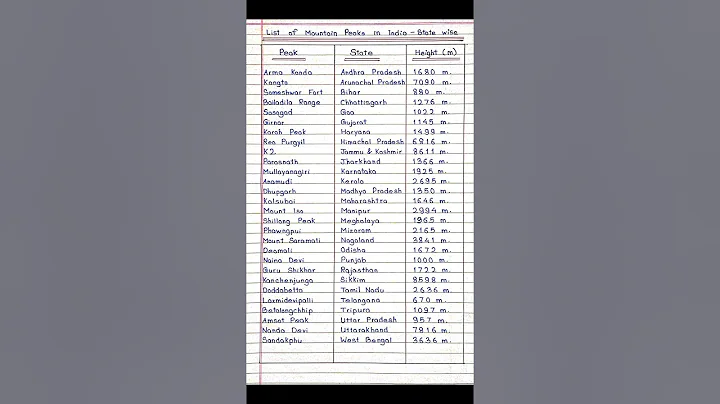 List of Mountain Peaks in India - State wise
Peak State Height (m)
Arma Konda Andhra Pradesh 1680 m.
Kangto Arunachal Pradesh 7090 m.
Someshwar Fort Bihar 880 m.
Bailadila Range Chhattisgarh 1276 m.
Sosogad Goa 1022 m.
Girnar Gujarat 1145 m.
Karoh Peak Haryana 1499 m.
Reo Purgyil Himachal Pradesh 6816 m.
K2 Jammu & Kashmir 8611 m.
Parasnath Jharkhand 1366 m.
Mullayanagiri Karnataka 1925 m.
Anamudi Kerala 2695 m.
Dhupgarh Madhya Pradesh 1350 m.
Kalsubai Maharashtra 1646 m.
Mount Iso Manipur 2994 m.
Shillong Peak Meghalaya 1965 m.
Phawngpui Mizoram 2165 m.
Mount Saramati Nagaland 3841 m.
Deomali Odisha 1672 m.
Naina Devi Punjab 1000 m.
Guru Shikhar Rajasthan 1722 m.
Kanchenjunga Sikkim 8598 m.
Doddabetta Tamil Nadu 2636 m.
Laxmidevipalli Telangana 670 m.
Betalongchhip Tripura 1097 m.
Amsot Peak Uttar Pradesh 957 m.
Nanda Devi Uttarakhand 7816 m.
Sandakphu West Bengal 3636 m.